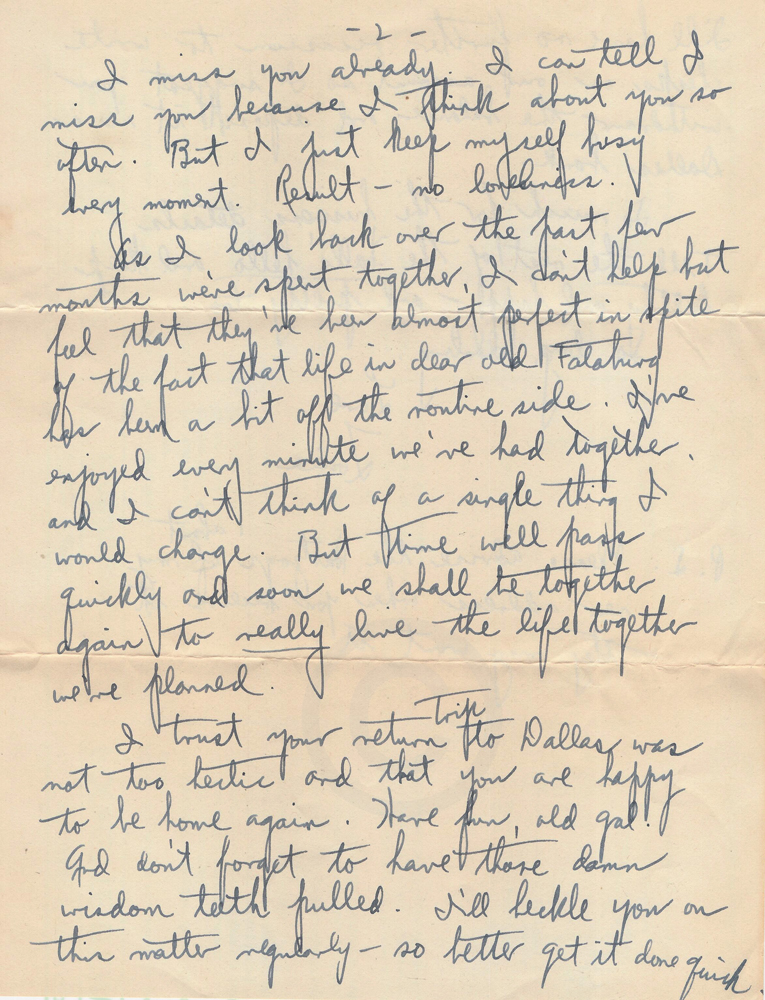 - 2 -
I miss you already. I can tell I
miss you because I think about you so
often. But I just keep myself busy
every moment. Result - no loneliness.
As I look back over the past few
months we've spent together, I can't help but
feel that they've been almost perfect in spite
of the fact that life in dear old
has been a bit off the routine side. I've
enjoyed every minute we've had together.
and I can't think of a single thing I
would change. But time will pass
quickly and soon we shall be together
again to really live the life together
we've planned.
I trust your return trip to Dallas was
not too hectic and that you are happy
to be home again. Have fun, old gal.
And don't forget to have those damn
wisdom teeth pulled. I'll heckle you on
this matter regularly - so better get it done quick.